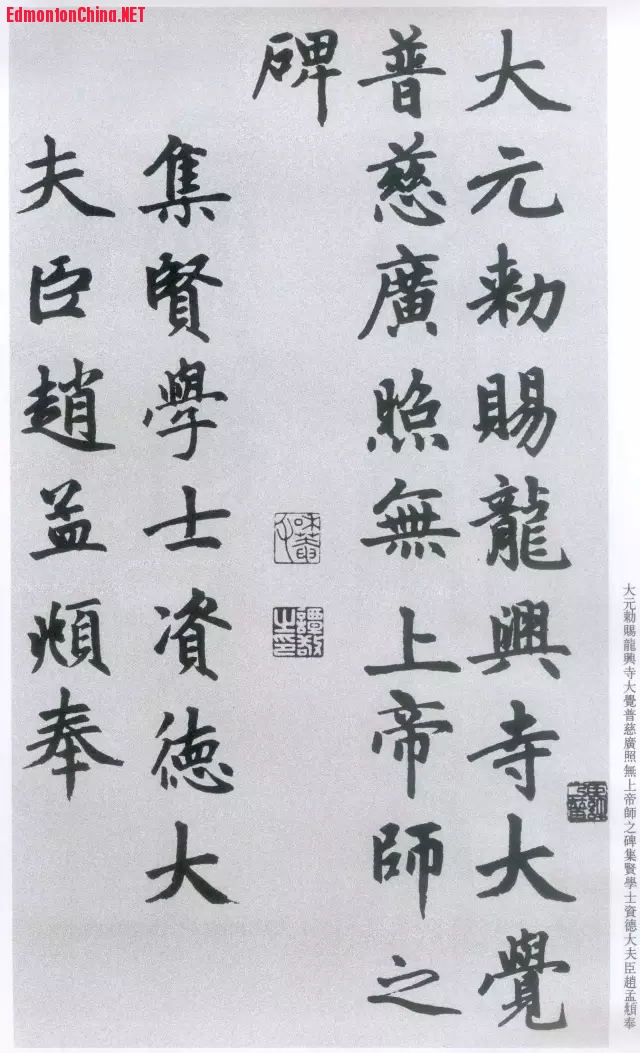 EdmontonChina.NET
大元勅賜龍興寺大覺
普慈廣照無上帝師之
碑
集賢學士資德大
夫臣趙孟頫奉
大元勅賜龍興寺大覺普慈廣照無上帝師之碑集賢學士資德大夫臣趙孟頫奉